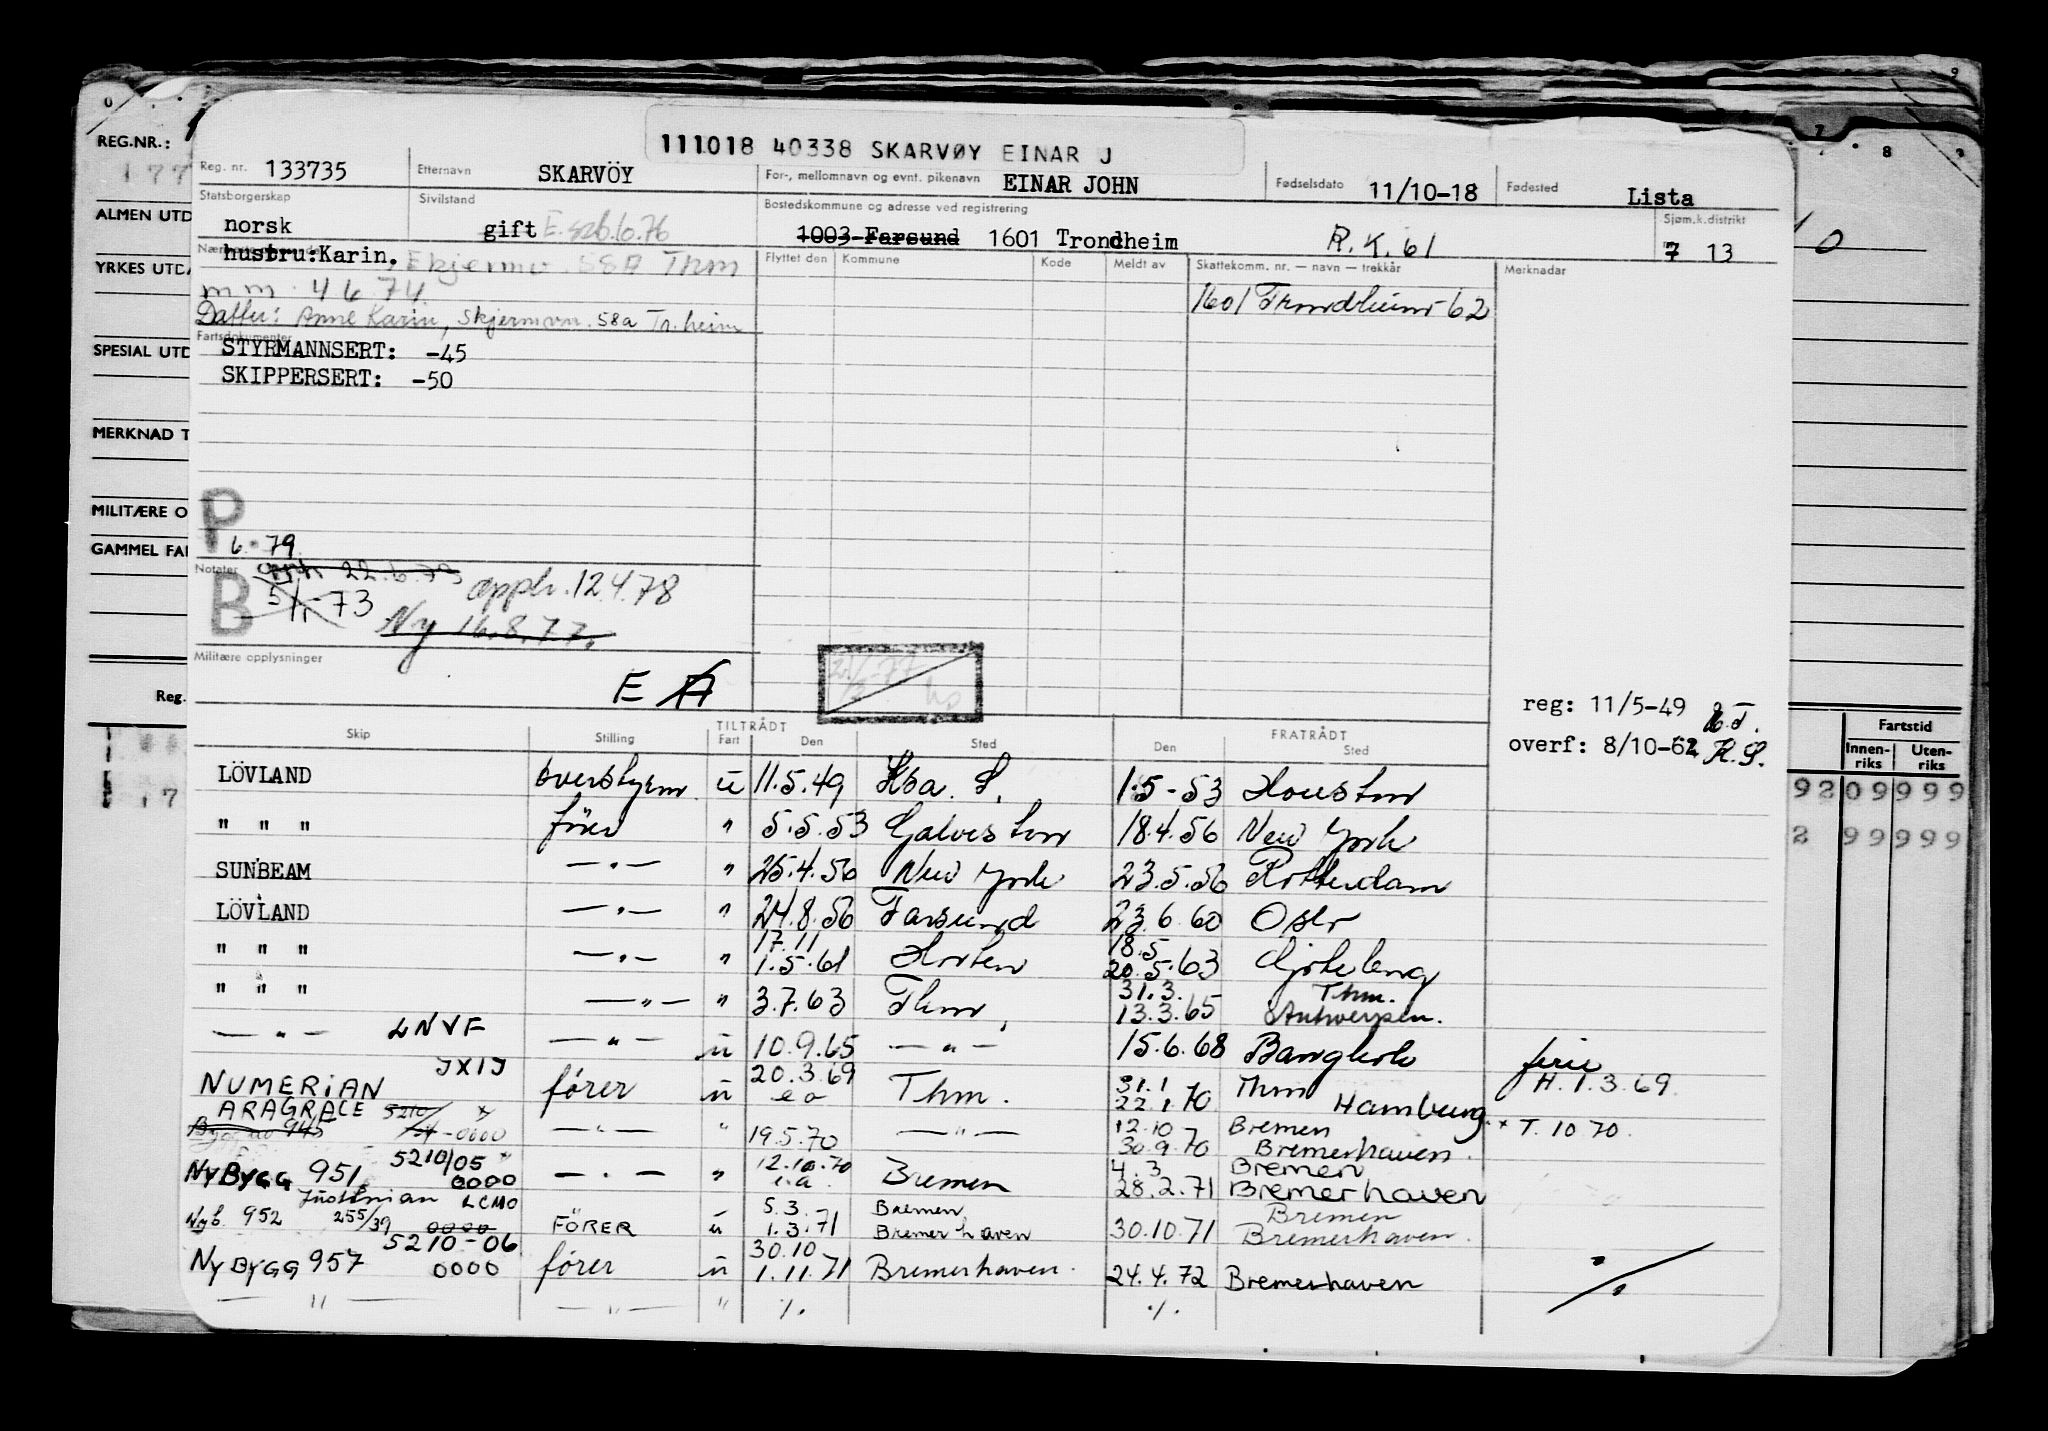 111018 40338 SKARVØY EINAR J
REG.NR.:
Reg. nr. 133735 Etternavn SKARVÖY For-, mellomnavn og evnt. pikenavn EINAR JOHN Fødselsdato 11/10-18 Fødested Lista
Statsborgerskap norsk Sivilstand gift Bostedskommune og adresse ved registrering 1003 Farsund 1601 Trondheim R.K. 61 Sjøm.k.distrikt 7 13
ALMEN UTD
hustru:Karin. 58A Thm
Flyttet den Kommune Kode Meldt av Skattekomm. nr. — navn — trekkår Merknader
YRKES UTDA
4 6 74
1601 Trondheim -62
Datter: Anne Karin, Skjermvn. 58a Tr.heim
Fartsdokumenter
SPESIAL UTD
STYRMANNSERT: -45
SKIPPERSERT: -50
MERKNAD T
MILITÆRE O
P
GAMMEL FAR
6-79
Notater 22.6.79
B 5/1-73 apph. 12.4.78
Ny 16.8.77.
Militære opplysninger
E A
Reg.
reg: 11/5-49
overf: 8/10-62 K.S.
Fartstid
Innen-riks Uten-riks
Skip Stilling Fart TILTRÅDT Den Sted Den FRATRÅDT Sted
LÖVLAND overstyrm ü 11.5.49 Kba. S. 1.5-53 Houston
" " " förer " 5.5.53 Galveston 18.4.56 New York
SUNBEAM — " — " 25.4.56 New York 23.5.56 Rotterdam
LÖVLAND — " — " 24.8.56 Farsund 23.6.60 Oslo
" " " — " — " 17.11 1.5.61 Horten 18.5 20.5.63 Gøteborg
" " " — " — " 3.7.63 Thm, 31.3. 13.3.65 Thm. Antwerpen.
— " — LNVF — " — ü 10.9.65 — " — 15.6.68 Bangkok ferie
NUMERIAN JXIJ fórer ü 20.3.69 ea Thm. 31.1 22.1.70 Thm Hamburg H. 1.3.69.
ARAGRACE 5210/ Bygg no 945 -0000 — " — " 19.5.70 — " — 12.10 30.9.70 Bremen Bremerhaven. * T. 10 70.
NYBYGG 951 5210/05 0000 — " — " 12.10.70 e.a. Bremen 4.3 28.2.71 Bremen Bremerhaven
Justinian LCMO
Nyb. 952 255/39 0000 FÖRER ü 5.3. 1.3.71 Bremen Bremerhaven 30.10.71 Bremen Bremerhaven.
NYBYGG 957 5210-06 0000 fórer ü 30.10 1.11.71 Bremerhaven. 24.4.72 Bremerhaven
— " — — " — " ./. ./.
92 09 999
2 99 999